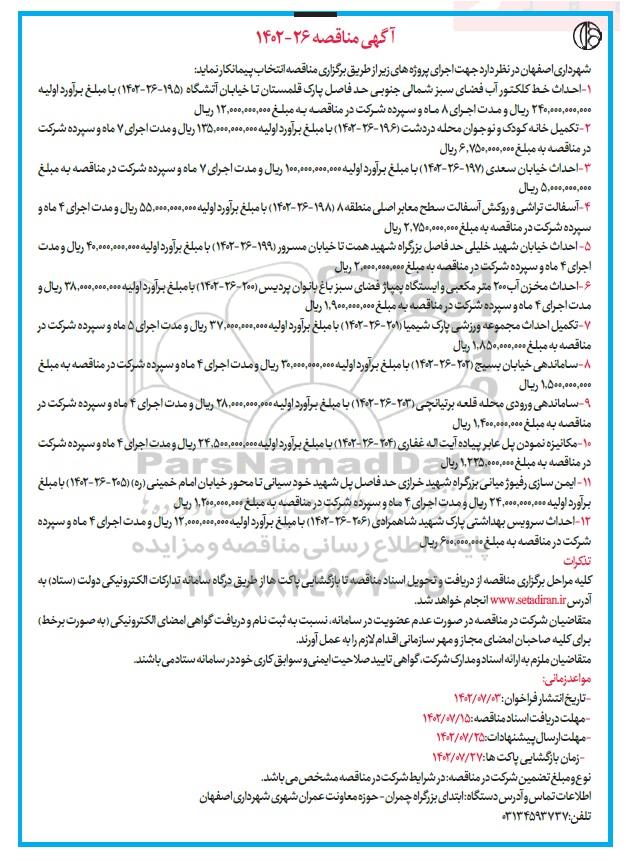 آگهی مناقصه ۲۶-۱۴۰۲
شهرداری اصفهان در نظر دارد جهت اجرای پروژه های زیر از طریق برگزاری مناقصه انتخاب پیمانکار نماید:
۱-احداث خط کلکتور آب فضای سبز شمالی جنوبی حد فاصل پارک قلمستان تا خیابان آتشگاه (۱۹۵-۲۶-۱۴۰۲) با مبلغ برآورد اولیه
۲۴۰,۰۰۰,۰۰۰,۰۰۰ ریال و مدت اجرای ۸ ماه و سپرده شرکت در مناقصه به مبلغ ۱۲,۰۰۰,۰۰۰,۰۰۰ ریال
۲-تکمیل خانه کودک و نوجوان محله دردشت (۱۹۶-۲۶-۱۴۰۲) با مبلغ برآورد اولیه ۱۳۵,۰۰۰,۰۰۰,۰۰۰ ریال و مدت اجرای ۷ ماه و سپرده شرکت
در مناقصه به مبلغ ۶,۷۵۰,۰۰۰,۰۰۰ ریال
۳-احداث خیابان سعدی (۱۹۷-۲۶-۱۴۰۲) با مبلغ برآورد اولیه ۱۰۰,۰۰۰,۰۰۰,۰۰۰ ریال و مدت اجرای ۷ ماه و سپرده شرکت در مناقصه به مبلغ
۵,۰۰۰,۰۰۰,۰۰۰ ریال
۴-آسفالت تراشی و روکش آسفالت سطح معابر اصلی منطقه ۸ (۱۹۸-۲۶-۱۴۰۲) با مبلغ برآورد اولیه ۵۵,۰۰۰,۰۰۰,۰۰۰ ریال و مدت اجرای ۴ ماه و
سپرده شرکت در مناقصه به مبلغ ۲,۷۵۰,۰۰۰,۰۰۰ ریال
۵- احداث خیابان شهید خلیلی حد فاصل بزرگراه شهید همت تا خیابان مسرور (۱۹۹-۲۶-۱۴۰۲) با مبلغ برآورد اولیه ۴۰,۰۰۰,۰۰۰,۰۰۰ ریال و مدت
اجرای ۴ ماه و سپرده شرکت در مناقصه به مبلغ ۲,۰۰۰,۰۰۰,۰۰۰ ریال
۶-احداث مخزن آب ۲۰۰ متر مکعبی و ایستگاه پمپاژ فضای سبز باغ بانوان پردیس (۲۰۰-۲۶-۱۴۰۲) با مبلغ برآورد اولیه ۳۸,۰۰۰,۰۰۰,۰۰۰ ریال و
مدت اجرای ۴ ماه و سپرده شرکت در مناقصه به مبلغ ۱,۹۰۰,۰۰۰,۰۰۰ ریال
۷-تکمیل احداث مجموعه ورزشی پارک شیمیا (۲۰۱-۲۶-۱۴۰۲) با مبلغ برآورد اولیه ۳۷,۰۰۰,۰۰۰,۰۰۰ ریال و مدت اجرای ۵ ماه و سپرده شرکت در
مناقصه به مبلغ ۱,۸۵۰,۰۰۰,۰۰۰ ریال
۸-ساماندهی خیابان بسیج (۲۰۲-۲۶-۱۴۰۲) با مبلغ برآورد اولیه ۳۰,۰۰۰,۰۰۰,۰۰۰ ریال و مدت اجرای ۴ ماه و سپرده شرکت در مناقصه به مبلغ
۱,۵۰۰,۰۰۰,۰۰۰ ریال
۹-ساماندهی ورودی محله قلعه برتیانچی (۲۰۳-۲۶-۱۴۰۲) با مبلغ برآورد اولیه ۲۸,۰۰۰,۰۰۰,۰۰۰ ریال و مدت اجرای ۴ ماه و سپرده شرکت در
مناقصه به مبلغ ۱,۴۰۰,۰۰۰,۰۰۰ ریال
۱۰-مکانیزه نمودن پل عابر پیاده آیت اله غفاری (۲۰۴-۲۶-۱۴۰۲) با مبلغ برآورد اولیه ۲۴,۵۰۰,۰۰۰,۰۰۰ ریال و مدت اجرای ۴ ماه و سپرده شرکت
در مناقصه به مبلغ ۱,۲۲۵,۰۰۰,۰۰۰ ریال
۱۱- ایمن سازی رفیوژ میانی بزرگراه شهید خرازی حد فاصل پل شهید خود سیانی تا محور خیابان امام خمینی (ره) (۲۰۵-۲۶-۱۴۰۲) با مبلغ
برآورد اولیه ۲۴,۰۰۰,۰۰۰,۰۰۰ ریال و مدت اجرای ۴ ماه و سپرده شرکت در مناقصه به مبلغ ۱,۲۰۰,۰۰۰,۰۰۰ ریال
۱۲-احداث سرویس بهداشتی پارک شهید شاهمرادی (۲۰۶-۲۶-۱۴۰۲) با مبلغ برآورد اولیه ۱۲,۰۰۰,۰۰۰,۰۰۰ ریال و مدت اجرای ۴ ماه و سپرده
شرکت در مناقصه به مبلغ ۶۰۰,۰۰۰,۰۰۰ ریال
تذکرات
کلیه مراحل برگزاری مناقصه از دریافت و تحویل اسناد مناقصه تا بازگشایی پاکت ها از طریق درگاه سامانه تدارکات الکترونیکی دولت (ستاد) به
آدرس www.setadiran.ir انجام خواهد شد.
متقاضیان شرکت در مناقصه در صورت عدم عضویت در سامانه، نسبت به ثبت نام و دریافت گواهی امضای الکترونیکی (به صورت برخط)
برای کلیه صاحبان امضای مجاز و مهر سازمانی اقدام لازم را به عمل آورند.
متقاضیان ملزم به ارائه اسناد و مدارک شرکت، گواهی تایید صلاحیت ایمنی و سوابق کاری خود در سامانه ستاد می باشند.
مواعد زمانی:
-تاریخ انتشار فراخوان: ۱۴۰۲/۰۷/۰۳
-مهلت دریافت اسناد مناقصه: ۱۴۰۲/۰۷/۱۵
-مهلت ارسال پیشنهادات: ۱۴۰۲/۰۷/۲۵
-زمان بازگشایی پاکت ها: ۱۴۰۲/۰۷/۲۷
نوع و مبلغ تضمین شرکت در مناقصه: در شرایط شرکت در مناقصه مشخص می باشد.
اطلاعات تماس و آدرس دستگاه: ابتدای بزرگراه چمران - حوزه معاونت عمران شهری شهرداری اصفهان
تلفن: ۰۳۱۳۴۵۹۳۷۳۷
ParsNamadData
پایگاه اطلاع رسانی مناقصه و مزایده
۰۲۱-۸۸۳۴۹۶۷۰-۵